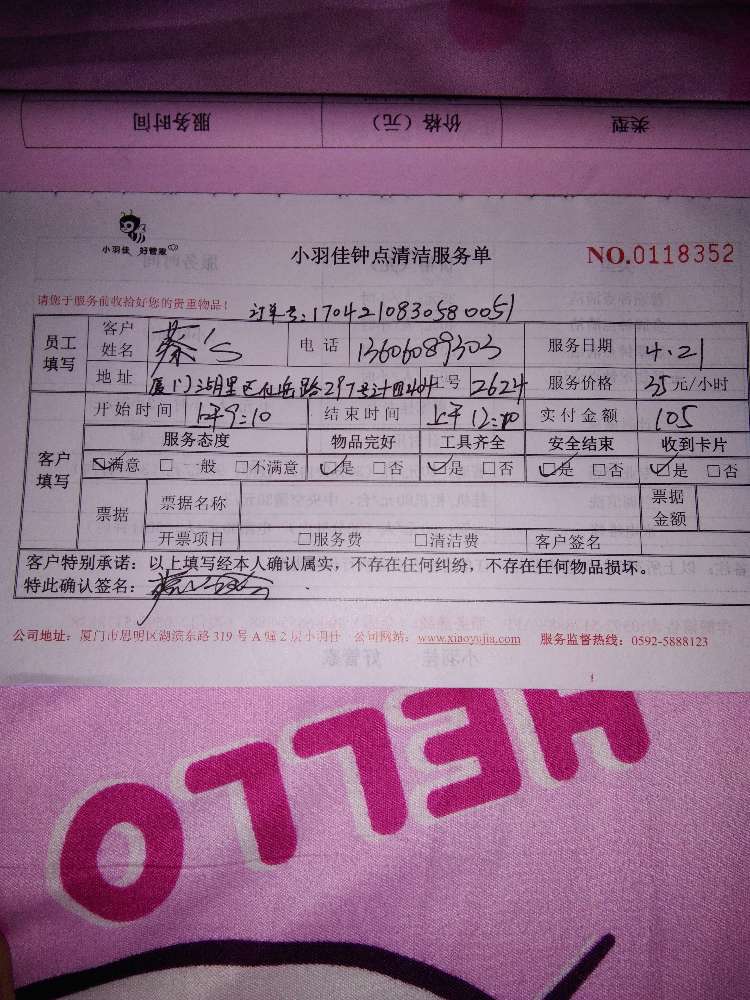 类型 价格（元） 服务时间
小羽佳 好管家
小羽佳钟点清洁服务单
NO.0118352
请您于服务前收拾好您的贵重物品！
订单号:170421083058 0051
员工填写 客户姓名 蔡's 电话 13606089303 服务日期 4.21
地址 厦门湖里区仙岳路297号 工号 2624 服务价格 35元/小时
客户填写 开始时间 上午9:10 结束时间 上午12:10 实付金额 105
服务态度 物品完好 工具齐全 安全结束 收到卡片
☑满意 □一般 □不满意 ☑是 □否 ☑是 □否 ☑是 □否 ☑是 □否
票据 票据名称 票据金额
开票项目 □服务费 □清洁费 客户签名
客户特别承诺：以上填写经本人确认属实，不存在任何纠纷，不存在任何物品损坏。
特此确认签名：
公司地址：厦门市思明区湖滨东路319号A幢2层小羽佳 公司网站：www.xiaoyujia.com 服务监督热线：0592-5888123
HELLO